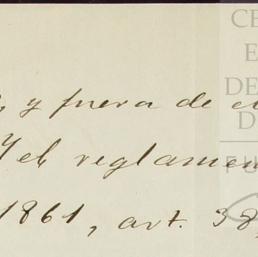 y fuera de
el reglamen
1861, art. 38,
CE
E
DE
D
F